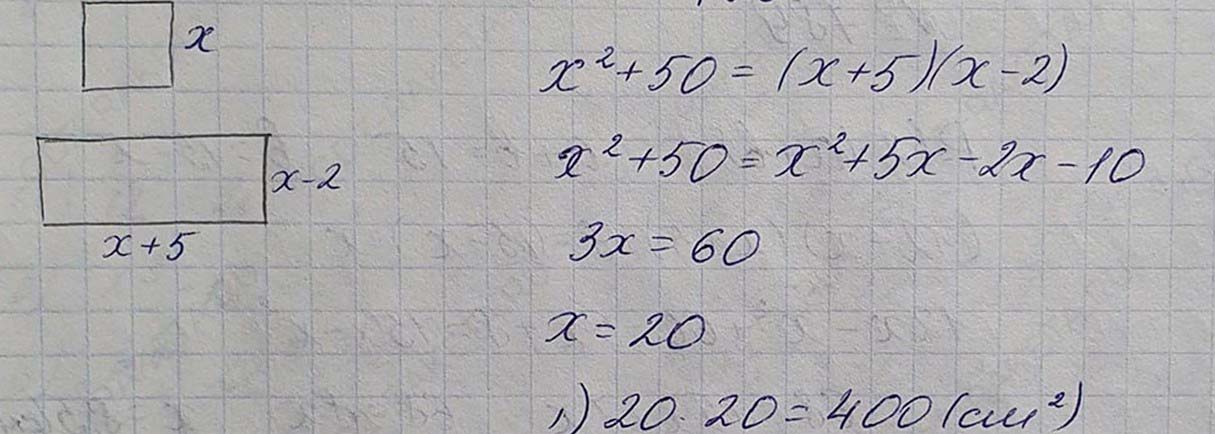 x
x-2
x+5
x²+50=(x+5)(x-2)
x²+50=x²+5x-2x-10
3x=60
x=20
1) 20·20=400 (см²)